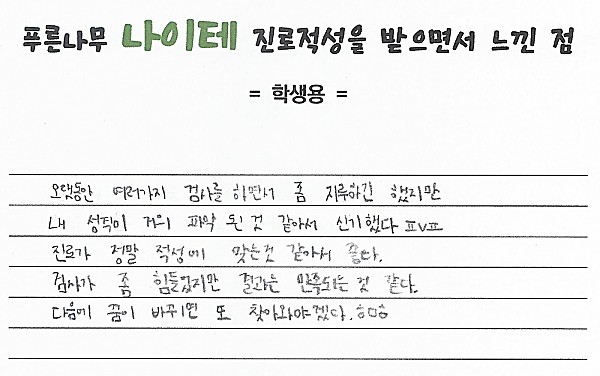 푸른나무 나이테 진로적성을 받으면서 느낀 점
= 학생용 =
오랫동안 여러가지 검사를 하면서 좀 지루하긴 했지만
내 성적이 거의 파악 된 것 같아서 신기했다 ㅍvㅍ
진로가 정말 적성에 맞는것 같아서 좋다.
검사가 좀 힘들었지만 결과는 만족되는 것 같다.
다음에 꿈이 바뀌면 또 찾아와야겠다. ㅎㅁㅎ